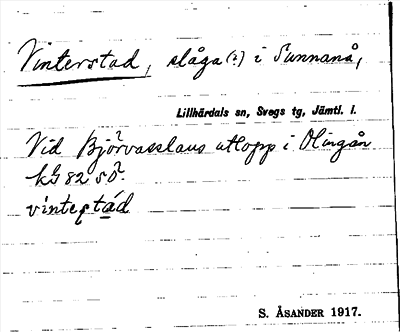 Vinterstad, slåga (?) i Sunnanå,
Lillhärdals sn, Svegs tg, Jämtl. l.
Vid Björvasslaus utlopp i Olingån
kG 82 sö.
vintestád
S. ÅSANDER 1917.